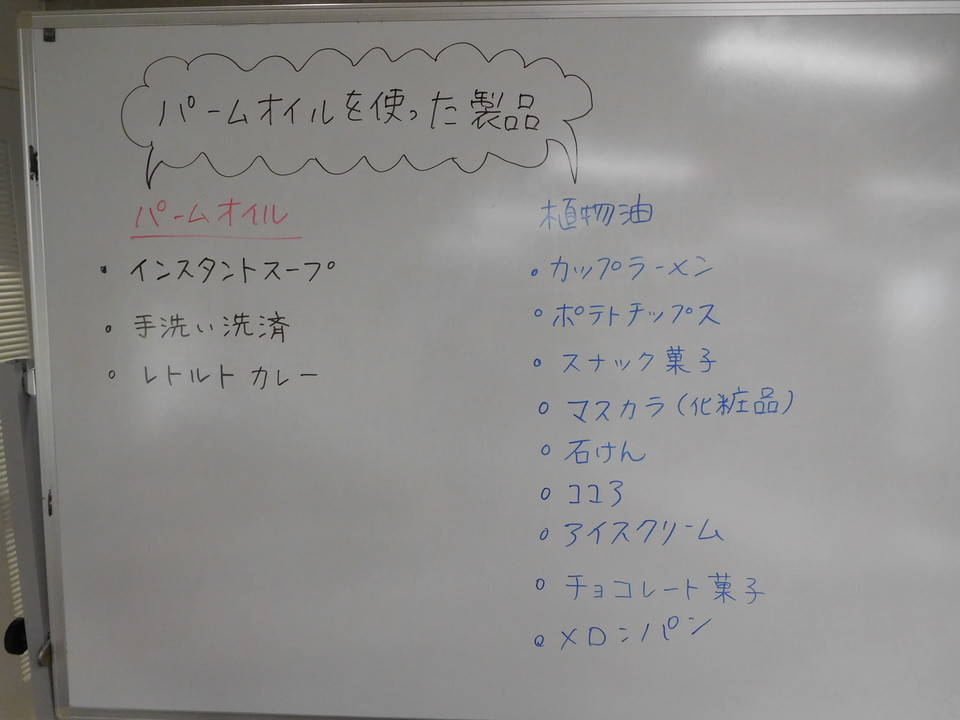 パームオイルを使った製品
パームオイル
・インスタントスープ
・手洗い洗済
・レトルトカレー
植物油
・カップラーメン
・ポテトチップス
・スナック菓子
・マスカラ(化粧品)
・石けん
・ココア
・アイスクリーム
・チョコレート菓子
・メロンパン